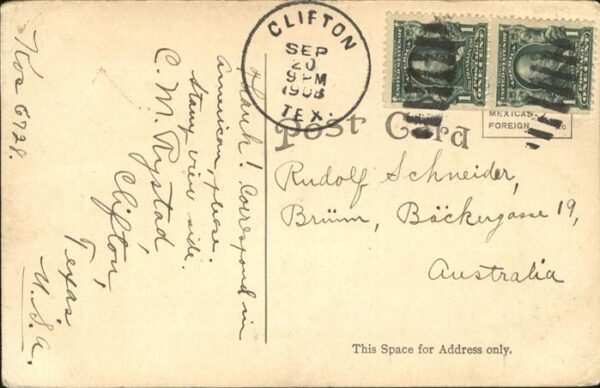 CLIFTON
SEP
20
9PM
1908
TEX.
Post Card
MEXICAN
FOREIGN
Rudolf Schneider,
Brünn, Bäckergasse 19,
Australia
This Space for Address only.
Kos 6728.
! Correspond in
American, please.
Stamp view side.
C. M. Rystad,
Clifton,
Texas
U.S.A.